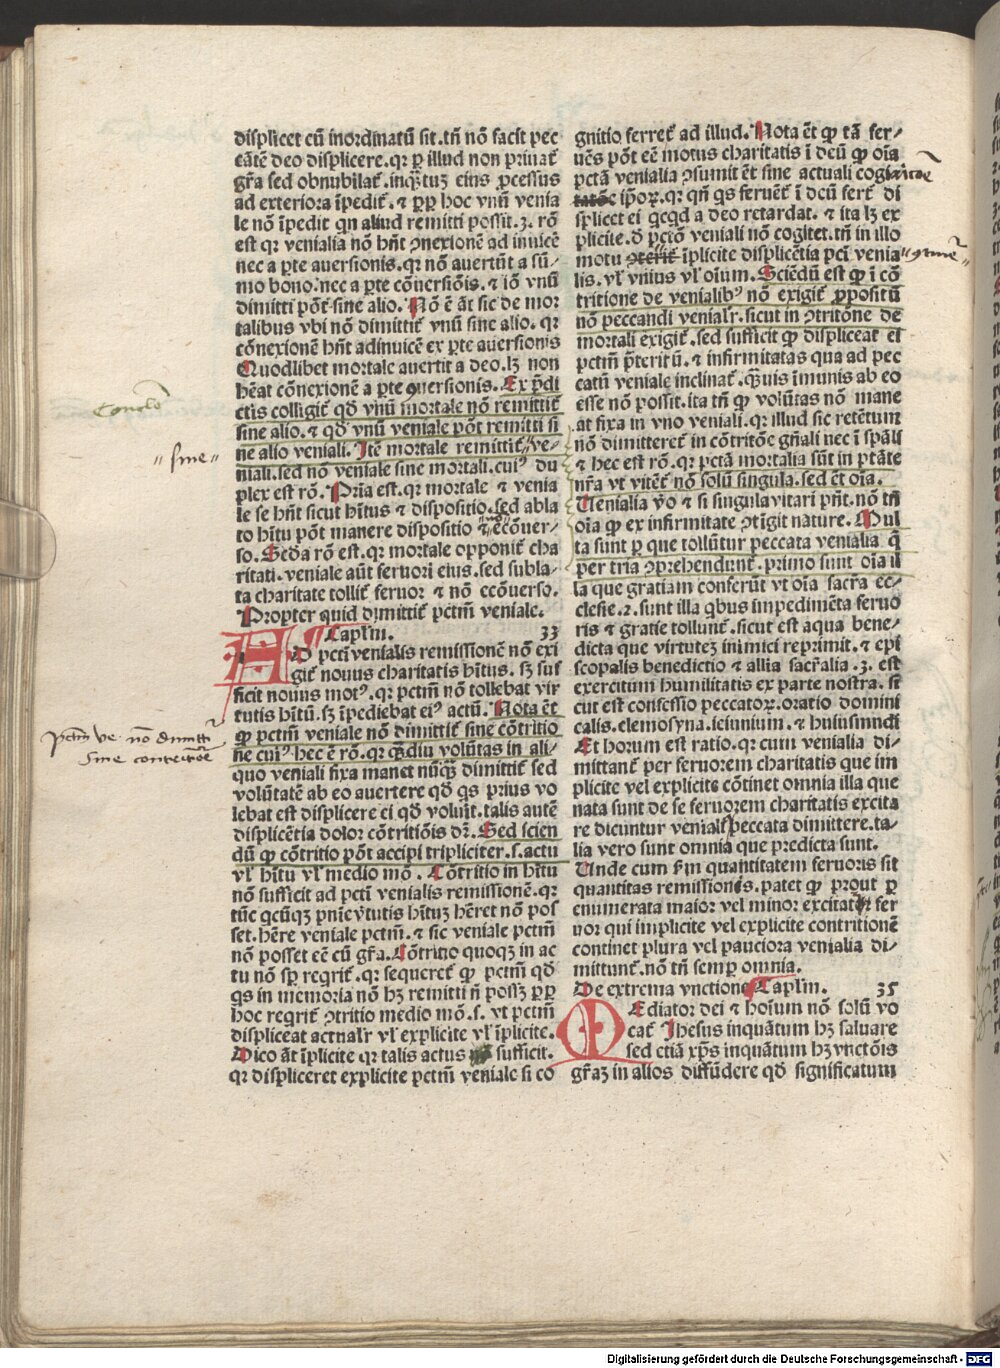 displicet cū inordinatū sit. tñ nō facit pec
cātē deo displicere. qꝛ ꝑ illud non priuat̃
gr̄a sed obnubilat̃. inqꝫtuꝫ eius ꝓcessus
ad exteriora īpedit̃. ⁊ ꝓꝑ hoc vnū venia
le nō īpedit qn aliud remitti possit. 3. rō
est qꝛ venialia nō hn̄t ꝯnexionē ad inuicē
nec a ꝑte auersionis. qꝛ nō auertūt a sū⸗
mo bono. nec a ꝑte cōuersiōis. ⁊ iō vnū
dimitti pōt sine alio. Nō ē āt sic de mor
talibus vbi nō dimittit̃ vnū sine alio. qꝛ
cōnexionē hn̄t adinuicē ex ꝑte auersionis
Quodlibet mortale auertit a deo. lꝫ non
hēat cōnexionē a ꝑte ꝯuersionis. Ex p̄di
ctis colligit̃ qd̄ vnū mortale nō remittit̃
sine alio. ⁊ qd̄ vnū veniale pōt remitti si
ne alio veniali. Itē mortale remittit̃ ve⸗
niali. sed nō veniale sine mortali. cuiꝰ du
plex est rō. Pria est. qꝛ mortale ⁊ venia
le se hn̄t sicut hītus ⁊ dispositio. sed abla
to hītu pōt manere dispositio ⁊ ecōuer⸗
so. Scd̄a rō est. qꝛ mortale opponit̃ cha
ritati. veniale aūt feruori eius. sed subla⸗
ta charitate tollit̃ feruor ⁊ nō ecōuerso.
Propter quid dimittit̃ pctm̄ veniale.
Caplm̄. 33
AD pcti venialis remissionē nō exi
git̃ nouus charitatis hītus. sꝫ suf
ficit nouus motꝰ. qꝛ pctm̄ nō tollebat vir
tutis hītū. sꝫ īpediebat eiꝰ actū. Nota ēt
ꝙ pctm̄ veniale nō dimittit̃ sine cōtritio
ne cuiꝰ hec ē rō. qꝛ qꝫdiu volūtas in ali⸗
quo veniali fixa manet nūqꝫ dimittit̃ sed
volūtatē ab eo auertere qd̄ qs prius vo
lebat est displicere ei qd̄ voluit. talis autē
displicētia dolor cōtritiōis dr̄. Sed scien
dū ꝙ cōtritio pōt accipi tripliciter. s. actu
vl̄ hītu vl̄ medio mō. Cōtritio in hītu
nō sufficit ad pcti venialis remissionē. qꝛ
tūc qcūqꝫ pnīe v̄tutis hītuꝫ hēret nō pos
set. hēre veniale pctm̄. ⁊ sic veniale pctm̄
nō posset eē cū gr̄a. Cōtritio quoqꝫ in ac
tu nō sꝑ reqrit̃. qꝛ sequeret̃ ꝙ pctm̄ qd̄
qs in memoria nō hꝫ remitti n̄ possꝫ ꝓꝑ
hoc reqrit̃ ꝯtritio medio mō. s. vt pctm̄
displiceat actualr̄ vl̄ explicite vl̄ īplicite.
Dico āt īplicite qꝛ talis actus sufficit.
qꝛ displiceret explicite pctm̄ veniale si co
gnitio ferret̃ ad illud. Nota ēt ꝙ tā fer⸗
uēs pōt eē motus charitatis ī deū ꝙ oīa
pctā venialia ꝯsumit ēt sine actuali cogi
ipōꝝ. qꝛ qn̄ qs feruēt̃ ī deū fert̃ di
splicet ei qcqd a deo retardat. ⁊ ita lꝫ ex
plicite. d̄ pctōn veniali nō cogitet. tn̄ in illo
motu īplicite displicētia pcti venia
lis. vl̄ vnius vl̄ oīum. Sciēdū est ꝙ ī cō
tritione de venialibꝰ nō exigit̃ ꝓpositū
nō peccandi venialr̄. sicut in ꝯtritōne de
mortali exigit̃. sed sufficit ꝙ displiceat ei
pctm̄ p̄teritū. ⁊ infirmitatas qua ad pec
catū veniale inclinat̃. qꝫuis imunis ab eo
esse nō possit. ita tn̄ ꝙ volūtas nō mane
at fixa in vno veniali. qꝛ illud sic retētum
nō dimitteret̃ in cōtritōe gn̄ali nec ī spāli
⁊ hec est rō. qꝛ pctā mortalia sūt in ptāte
nr̄a vt vitēt̃ nō solū singula. sed ēt oīa.
Uenialia v̄o ⁊ si singula vitari pn̄t. nō tn̄
oīa ꝙ ex infirmitate ꝯtīgit nature. Mul
ta sunt ꝑ que tollūtur peccata venialia q̄
per tria ꝯprehendunt̃. primo sunt oīa il
la que gratiam conferūt vt oīa sacr̄a ec⸗
clesie. 2. sunt illa qbus impedimēta feruo
ris ⁊ gratie tollunt̃. sicut est aqua bene⸗
dicta que virtutez inimici reprimit. ⁊ epi
scopalis benedictio ⁊ allia sacr̄alia. 3. est
exercitum humilitatis ex parte nostra. si
cut est confessio peccatoꝝ. oratio domini
calis. elemosyna. ieiunium. ⁊ huiusmōdi
Et horum est ratio. qꝛ cum venialia di⸗
mittant̃ per feruorem charitatis que im
plicite vel explicite cōtinet omnia illa que
nata sunt de se feruorem charitatis excita
re dicuntur venialꝭ peccata dimittere. ta⸗
lia vero sunt omnia que predicta sunt.
Unde cum fm̄ quantitatem feruoris sit
quantitas remissionis. patet ꝙ prout ꝑ
enumerata maior vel minor excitat̃ fer
uor qui implicite vel explicite contritionē
continet plura vel pauciora venialia di⸗
mittunt̃. nō tn̄ semꝑ omnia.
De extrema vnctione Caplm̄. 35
MEdiator dei ⁊ hoīum nō solū vo
cat̃ Ihesus inquātum hꝫ saluare
sed etiā xp̄s inquātum hꝫ vnctōis
gr̄aꝫ in alios diffūdere qd̄ significatum
sine
pctm̄ ve. nō dimittit̃
sine contritiōe
Digitalisierung gefördert durch die Deutsche Forschungsgemeinschaft - DFG